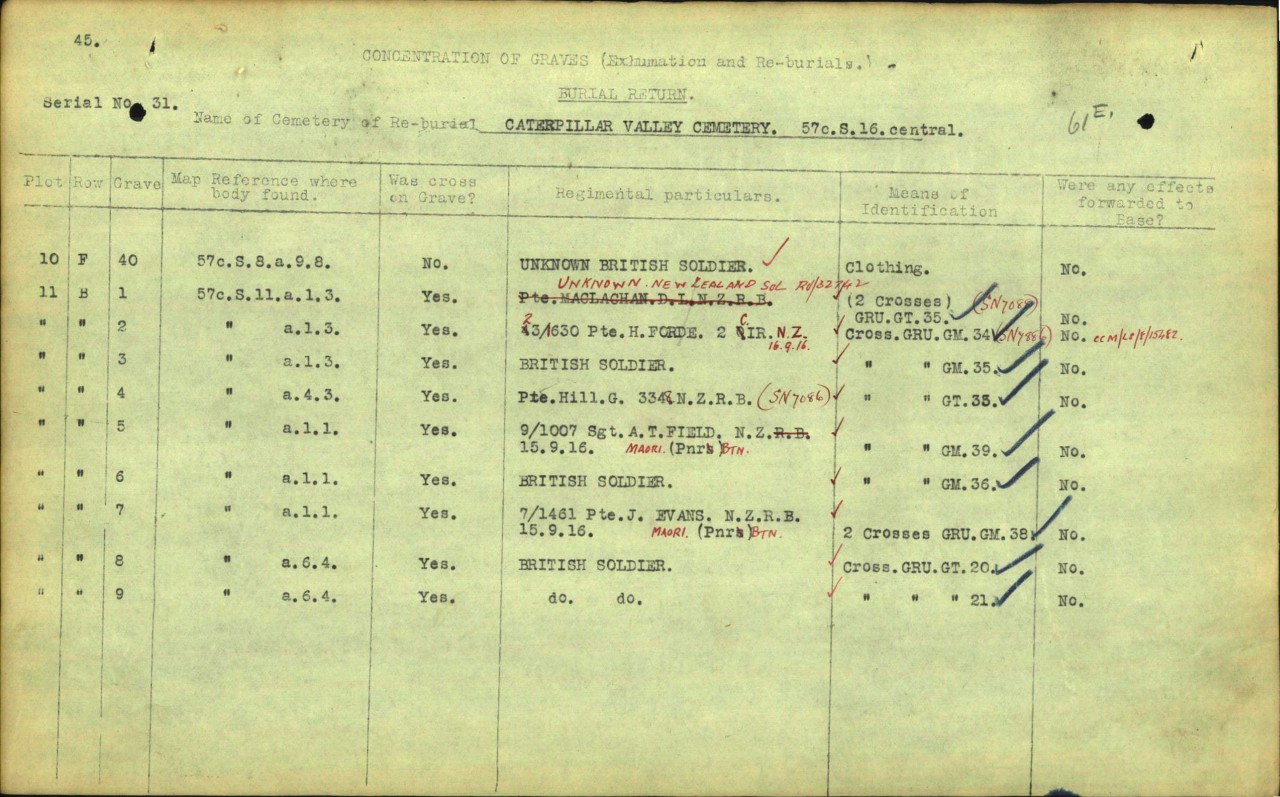 45.
CONCENTRATION OF GRAVES (Exhumation and Re-burials.)
BURIAL RETURN.
Serial No. 31.
Name of Cemetery of Re-burial CATERPILLAR VALLEY CEMETERY. 57c.S.16.central.
61E.
Plot Row Grave Map Reference where body found. Was cross on Grave? Regimental particulars. Means of Identification Were any effects forwarded to Base?
10 F 40 57c.S.8.a.9.8. No. UNKNOWN BRITISH SOLDIER. Clothing. No.
UNKNOWN. NEW ZEALAND SOL
11 B 1 57c.S.11.a.1.3. Yes. Pte.MACLACHAN.D.L.N.Z.R.B. (2 Crosses)
GRU.GT.35. No.
" " 2 " a.1.3. Yes. 3/630 Pte.H.FORDE. 2 C IR. N.Z. Cross.GRU.GM.34 (SN7886) No.
16.9.16.
" " 3 " a.1.3. Yes. BRITISH SOLDIER. " " GM.35. No.
" " 4 " a.4.3. Yes. Pte.Hill.G. N.Z.R.B. (SN7086) " " GT.35. No.
" " 5 " a.1.1. Yes. 9/1007 Sgt.A.T.FIELD. N.Z.R.B.
15.9.16. MAORI. (Pnrs) BTN. " " GM.39. No.
" " 6 " a.1.1. Yes. BRITISH SOLDIER. " " GM.36. No.
" " 7 " a.1.1. Yes. 7/1461 Pte.J. EVANS. N.Z.R.B.
15.9.16. MAORI. (Pnrs) BTN. 2 Crosses GRU.GM.38. No.
" " 8 " a.6.4. Yes. BRITISH SOLDIER. Cross.GRU.GT.20. No.
" " 9 " a.6.4. Yes. do. do. " " " 21. No.